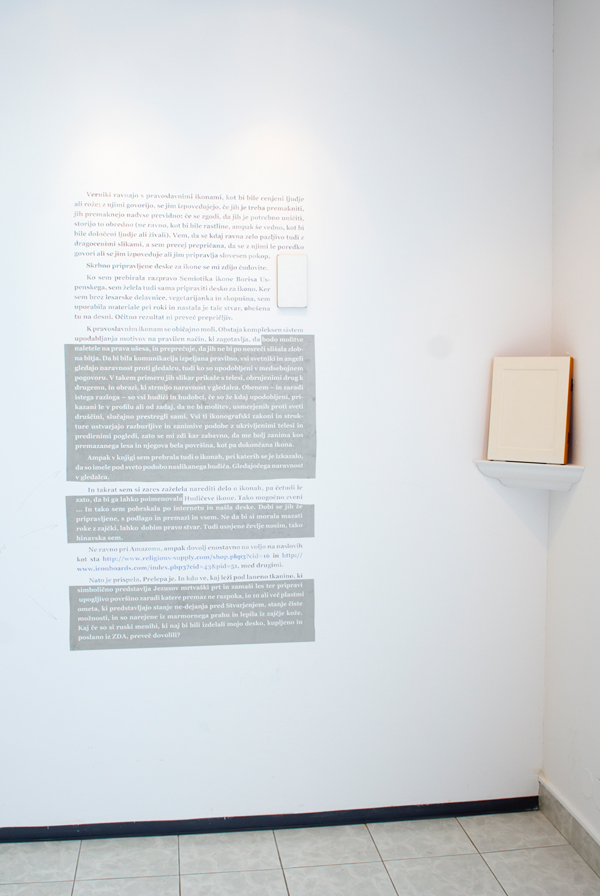 Verniki ravnajo s pravoslavnimi ikonami, kot bi bile cenjeni ljudje
ali rože: z njimi govorijo, se jim izpovedujejo, če jih je treba premakniti,
jih premaknejo nadvse previdno; če se zgodi, da jih je potrebno uničiti,
storijo to obredno (ne ravno, kot bi bile rastline, ampak še vedno, kot bi
bile določeni ljudje ali živali). Vem, da se kdaj ravna zelo pazljivo tudi z
dragocenimi slikami, a sem precej prepričana, da se z njimi le poredko
govori ali se jim izpoveduje ali jim pripravlja slovesen pokop.
Skrbno pripravljene deske za ikone se mi zdijo čudovite.
Ko sem prebirala razpravo Semiotika ikone Borisa Us-
penskega, sem želela tudi sama pripraviti desko za ikono. Ker
sem brez lesarske delavnice, vegetarijanka in skopušna, sem
uporabila materiale pri roki in nastala je tale stvar, obešena
tu na desni. Očitno rezultat ni preveč prepričljiv.
K pravoslavnim ikonam se običajno moli. Obstaja kompleksen sistem
upodabljanja motivov na pravilen način, ki zagotavlja, da bodo molitve
naletele na prava ušesa, in preprečuje, da jih ne bi po nesreči slišala zlob-
na bitja. Da bi bila komunikacija izpeljana pravilno, vsi svetniki in angeli
gledajo naravnost proti gledalcu, tudi ko so upodobljeni v medsebojnem
pogovoru. V takem primeru jih slikar prikaže s telesi, obrnjenimi drug k
drugemu, in obrazi, ki strmijo naravnost v gledalca. Obenem – in zaradi
istega razloga – so vsi hudiči in hudobci, če so že kdaj upodobljeni, pri-
kazani le v profilu ali od zadaj, da ne bi molitev, usmerjenih proti sveti
druščini, slučajno prestregli sami. Vsi ti ikonografski zakoni in struk-
ture ustvarjajo razburljive in zanimive podobe z ukrivljenimi telesi in
predirnimi pogledi, zato se mi zdi kar zabavno, da me bolj zanima kos
premazanega lesa in njegova bela površina, kot pa dokončana ikona.
Ampak v knjigi sem prebrala tudi o ikonah, pri katerih se je izkazalo,
da so imele pod sveto podobo naslikanega hudiča. Gledajočega naravnost
v gledalca.
In takrat sem si zares zaželela narediti delo o ikonah, pa četudi le
zato, da bi ga lahko poimenovala Hudičeve ikone. Tako mogočno zveni
... In tako sem pobrskala po internetu in našla deske. Dobi se jih že
pripravljene, s podlago in premazi in vsem. Ne da bi si morala mazati
roke z zajčki, lahko dobim pravo stvar. Tudi usnjene čevlje nosim, tako
hinavska sem.
Ne ravno pri Amazonu, ampak dovolj enostavno na voljo na naslovih
kot sta http://www.religious-supply.com/shop.php?cid=16 in http://
www.iconboards.com/index.php?cid=43&pid=52, med drugimi.
Nato je prispela. Prelepa je. In kdo ve, kaj leži pod laneno tkanino, ki
simbolično predstavlja Jezusov mrtvaški prt in zamaši les ter pripravi
vpogljivo površino zaradi katere premaz ne razpoka, in to ali več plastmi
ometa, ki predstavljajo stanje ne-dejanja pred ustvarjenjem, stanje čiste
možnosti, in so narejene iz marmornega prahu in lepila iz zajčje kože.
Kaj če so si ruski menihi, ki naj bi bili izdelali mojo desko, kupljeno in
poslano iz ZDA, preveč dovolili?